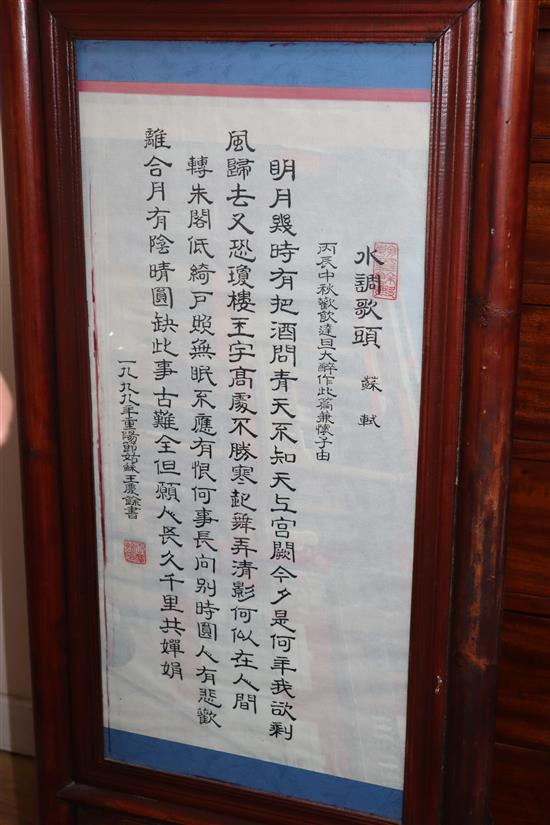 水調歌頭
蘇軾
丙辰中秋歡飲達旦大醉作此篇兼懷子由
明月幾時有把酒問青天不知天上宮闕今夕是何年我欲剩
風歸去又恐瓊樓玉宇高處不勝寒起舞弄清影何似在人間
轉朱閣低綺戶照無眠不應有恨何事長向別時圓人有悲歡
離合月有陰晴圓缺此事古難全但願人長久千里共嬋娟
一九九九年重陽節姑蘇王慶餘書